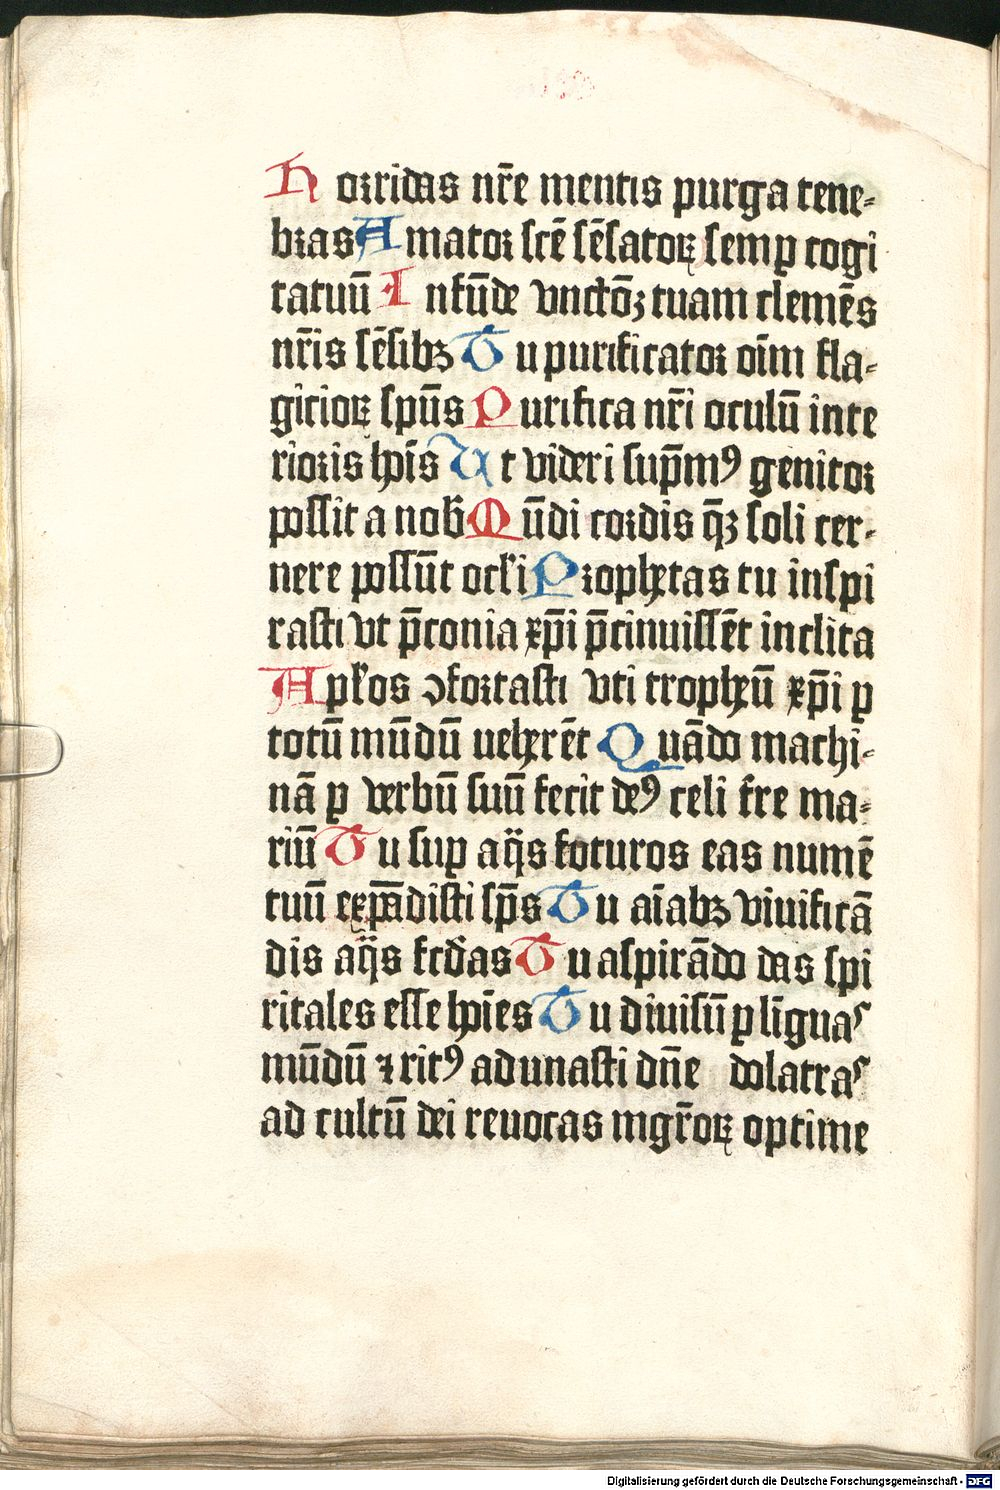 Horridas nr̄e mentis purga tene-
bras Amator scē sēsatoꝝ semꝑ cogi
tatuū Infūde vnctōꝫ tuam clemēs
nr̄is sēsibꝫ Tu purificator oīm fla-
gicioꝝ spūs Purifica nr̄i oculū inte
rioris hoīs Ut videri sup̄mꝰ genitor
possit a nob̄ Mūdi cordis q̄ꝫ soli cer-
nere possūt oc̄li Prophetas tu inspi
rasti vt p̄conia xp̄i p̄cinuissēt inclita
Apl̄os ↄfortasti vti tropheū xp̄i ꝑ
totū mūdū ueherēt Quādo machi-
nā ꝑ verbū suū fecit deꝰ celi t̄re ma-
riū Tu suꝑ aq̄s foturos eas numē
tuū expādisti sp̄s Tu aīabꝫ viuificā
dis aq̄s fcd̄as Tu aspirādo das spi
ritales esse hoīes Tu diuisū ꝑ līguas
mūdū ⁊ ritꝰ adunasti dn̄e dolatras
ad cultū dei reuocas mgr̄oꝝ optime
Digitalisierung gefördert durch die Deutsche Forschungsgemeinschaft - DFG